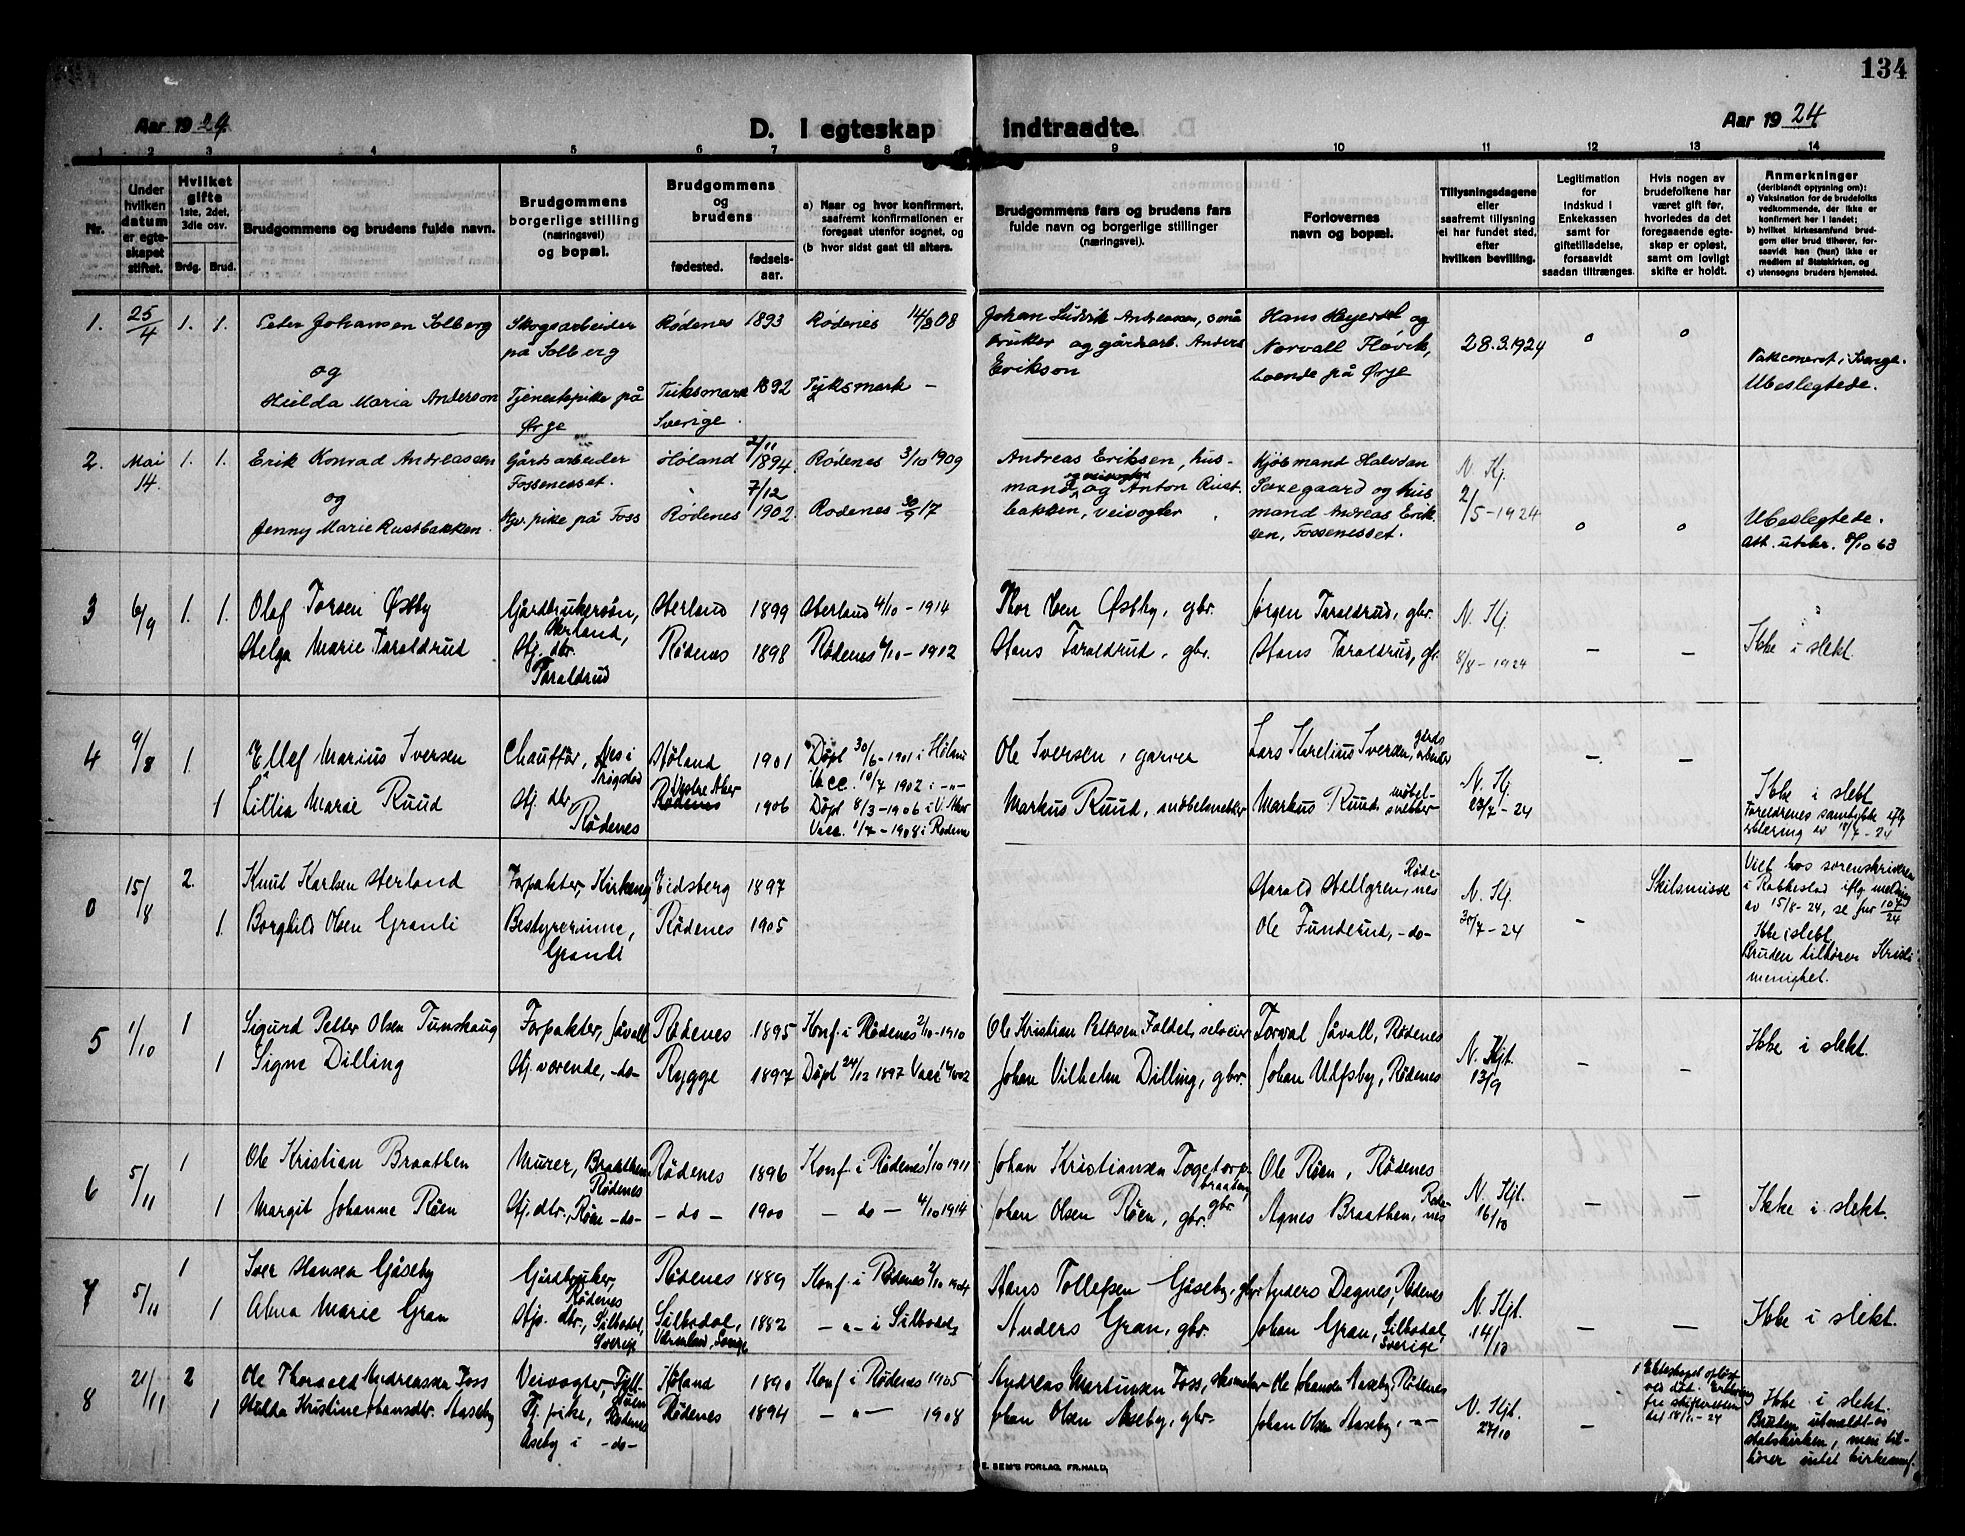 134
Aar 1924
D. I egteskap indtraadte.
Aar 1924
1 2 3 4 5 6 7 8 9 10 11 12 13 14
Nr.
Under
hvilken
datum
er egte-
skapet
stiftet.
Hvilket
gifte
1ste, 2det,
3die osv.
Brdg. Brud.
Brudgommens og brudens fulde navn.
Brudgommens
borgerlige stilling
(næringsvei)
og bopæl.
Brudgommens
og
brudens
fødested.
fødsels-
aar.
a) Naar og hvor konfirmert,
saafremt konfirmationen er
foregaat utenfor sognet, og
(b hvor sidst gaat til alters.
Brudgommens fars og brudens fars
fulde navn og borgerlige stillinger
(næringsvei).
Forlovernes
navn og bopæl.
Tillysningsdagene
eller
saafremt tillysning
ei har fundet sted,
efter
hvilken bevilling.
Legitimation
for
indskud i
Enkekassen
samt for
giftetilladelse,
forsaavidt
saadan tiltrænges.
Hvis nogen av
brudefolkene har
været gift før,
hvorledes da det
foregaaende egte-
skap er opløst,
samt om lovligt
skifte er holdt.
Anmerkninger
(deriblandt oplysning om):
a) Vaksination for de brudefolks
vedkommende, der ikke er
konfirmert her i landet;
b) hvilket kirkesamfund brud-
gom eller brud tilhører, for-
saavidt han (hun) ikke er
medlem af Statskirken, og
c) utensogns bruders hjemsted.
1. 25/4 1. 1. Peter Johansen Solberg
og
Hilda Maria Anderson
Skogsarbeider
på Solberg
Tjenestepike på
Ørje
Rødenes 1893
1892
Sverige.
Rødenes
Johan Ludvik Andreassen, små
bruker og gårdsarb. Anders
Erikson
Hans Heyerdal og
Norvall Fløvik,
boende på Ørje
28.3.1924
o
o
Ubeslegtede.
2. Mai
14. 1. 1. Erik Konrad Andreassen
og
Jenny Marie Rustbakken.
Gårdsarbeider
Fossenesset.
pike på Foss
Høland 2/11 1894.
Rødenes 7/12 1902.
Rødenes 3/10 1909
Rødenes 30/9 17
Andreas Eriksen, hus-
mand, og Anton Rust-
bakken, veivogter
Kjøbmand Halvdan
Saxegaard og hus
mand Andreas Erik
sen, Fossenesset.
N. Kj.
2/5-1924
o
o
Ubeslegtede.
Att. utskr. 8/10 63
3 6/9 1. 1. Olaf Torsen Østby
Helga Marie Taraldrud
Gårdbrukersøn,
Herland,
Hj. dtr.
Taraldrud
Herland 1899
Rødenes 1898
Herland 4/10-1914
Rødenes 6/10-1912
Thor Olsen Østby, gbr.
Hans Taraldrud, gbr.
Jørgen Taraldrud, gbr.
Hans Taraldrud, gbr
N. Kj.
8/8-1924
-
-
Ikke i slekt.
4 9/8 1. Ellef Marius Iversen
1 Lillia Marie Ruud
Chauffør, Nes i
Trøgstad
Hj. dtr.
Rødenes
Høland 1901
Vestre Aker
Rødenes 1906
Døpt 30/6-1901 i Høland
Vacc. 10/7 1902 i -"-
Døpt 8/3-1906 i V. Aker
Vacc. 1/7-1908 i Rødenes
Ole Iversen, garver
Markus Ruud, møbelsnekker
Lars Threlius Iversen, gårds
arbeider
Markus Ruud, møbel-
snekker
N. Kj.
23/7-24
-
-
Ikke i slekt
Foreldrenes samtykke iflg
erklæring av 18/7-24
0 15/8 2. Knut Karlsen Herland
1. Borghild Olsen Granli
Forpakter, Kirkeng
Bestyrerinne,
Granli
Eidsberg 1897
Rødenes 1905
Harald Hellgren, Røde
nes
Ole Funderud, -do-
N. Kj.
30/7-24
-
Skilsmisse
Viet hos sorenskriveren
i Rakkestad iflg melding
av 15/8-24, se jnr 107/24
Ikke i slekt,
Bruden tilhører
menighet.
5 1/10 1 Sigurd Petter Olsen Tunshaug
1 Signe Dilling
Forpakter, Jåvall
Hj. værende, -do-
Rødenes 1895
Rygge 1897
Konf. i Rødenes 2/10-1910
Døpt 24/12 1897 Vacc
Ole Kristian Pettersen Faldet, selveier
Johan Vilhelm Dilling, gbr.
Torval Jåvall, Rødenes
Johan Ulfsby, Rødenes
N. Kjt.
13/9
-
-
Ikke i slekt.
6 5/11 1 Ole Kristian Braathen
1 Margit Johanne Røen
Murer, Braathen
Rødenes
Hj. dtr., Røen -do-
Rødenes 1896
- do - 1900
Konf. i Rødenes 1/10 1911
- do - 4/10 1914
Johan Kristiansen Togstorp-
braaten,
gbr
Johan Olsen Røen, gbr.
Ole Røen, Rødenes
Agnes Braathen, Røde-
nes
N. Kjt.
16/10
-
-
Ikke i slekt.
7 5/11 1 Iver Hansen Gåseby
1 Alma Marie Gran
Gårdbruker,
Rødenes
Hjv. dtr., Silbodal,
Sverige
Rødenes 1889
Silbodal, 1882
Värmland, Sverige
Konf. i Rødenes 2/10 1904
- " - i Silbodal
Hans Tollefsen Gåseby, gbr
Anders Gran, gbr.
Anders Degnes, Rødenes
Johan Gran, Silbodal,
Sverige
N. Kjt.
14/10
-
-
Ikke i slekt.
8 21/11 2 Ole Thorvald Andreassen Foss
1 Hulda Kristine Johansdtr. Aaseby
Veivogter,
Rødenes
Tj. pike,
Åseby i -do-
Høland 1890
Rødenes 1894
Konf. i Rødenes 1905
- " - 1908
Andreas Martinsen Foss, skomaker
Johan Olsen Aaseby, gbr.
Ole Johansen Aaseby, Rødenes
Johan Olsen Aaseby, -"-
N. Kjt.
27/10
-
Ekteskapet opløst
ved død. Erklæring
fra skifteretten
dat 18/11-24
Ikke i slekt.
Bruden utmeldt av
statskirken, men til-
hører intet kirkesamf.
E. SEM'S FORLAG, FR.HALD.